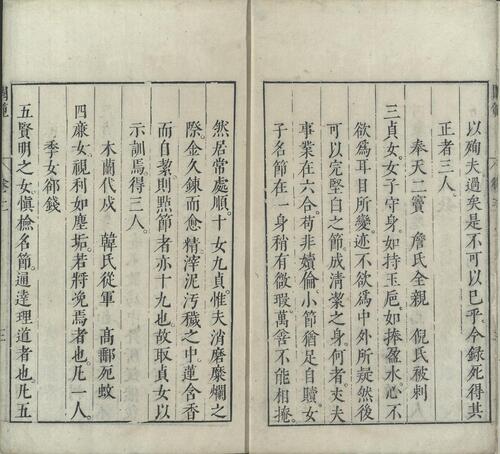 以殉夫過矣是不可以已乎今錄死得其
正者三人
奉天二竇 詹氏全親 倪氏被刺
三貞女女子守身如持玉巵如捧盈水心不
欲爲耳目所變迹不欲爲中外所疑然後
可以完堅白之節成清潔之身何者丈夫
事業在六合苟非嬻倫小節猶足自贖女
子名節在一身稍有微瑕萬善不能相掩
然居常處順十女九貞惟夫消磨糜爛之
際金久鍊而愈精滓泥汚穢之中蓮含香
而自潔則點節者亦十九也故取貞女以
示訓焉得三人
木蘭代戍 韓氏從軍 高郵死蚊
四廉女視利如塵垢若將浼焉者也凡一人
季女郤錢
五賢明之女慎檢名節通達理道者也凡五